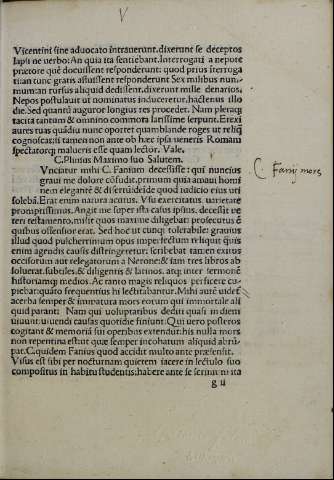 V
Vicentini sine aduocato intrauerunt. dixerunt se deceptos
lapsi ne uerbo: An quia ita sentiebant. Interrogati a nepote
prætore quē docuissent responderunt: quod prius íterroga
ti an tunc gratis affuisset responderunt Sex milibus num-
mum: an rursus aliquid dedissent. dixerunt mille denarios.
Nepos postulauit ut nominatus induceretur. hactenus illo
die. Sed quantū auguror longius res procedet. Nam pleraq̃
tacta tantum & omnino commota latissime serpunt. Erexi
aures tuas quādiu nunc oportet quam blande roges ut reliq̃
cognoscas: si tamen non ante ob hæc ipsa ueneris Romam
spectatorq̃ malueris esse quam lector. Vale.
C. Plinius Maximo suo Salutem.
Nunciatur mihi C. Fanium decessisse: qui nuncius
graui me dolore cōfudit. primum quia amaui homi
nem elegantē & disertū: deinde quod iudicio eius uti
solebā. Erat enim natura acutus. Vsu exercitatus. uarietate
promptissimus. Angit me super ista casus ipsius. decessit ue
teri testamento. misit quos maxime diligebat: prosecutus ē
quibus offensior erat. Sed hoc ut cunq̃ tolerabile: grauius
illud quod pulcherrimum opus imperfectum reliquit q̃uis
enim agendis causis distringeretur: scribebat tamen exitus
occisorum aut relegatorum a Nerone: & iam tres libros ab
soluerat. subtiles. & diligentis & latinos. atq̃ inter sermonē
historiamq̃ medios. Ac tanto magis reliquos perficere cu-
piebat: quáto frequentius hi lectitabantur. Mihi autē uidet̃
acerba semper & immatura mors eorum qui immortale ali
quid parant. Nam qui uoluptatibus dediti quasi in diem
uiuunt. uiuendi causas quotidie finiunt. Qui uero posteros
cogitant & memoriā sui operibus extendunt. his nulla mors
non repentina est: ut quæ semper incohatum aliquid abrū-
pat. C. quidem Fanius quod accidit multo ante præsensit.
Visus est sibi per nocturnam quietem iacere in lectulo suo
compositus in habitu studentis: habere ante se scrinium: ita
g ii
C. Fanij mors